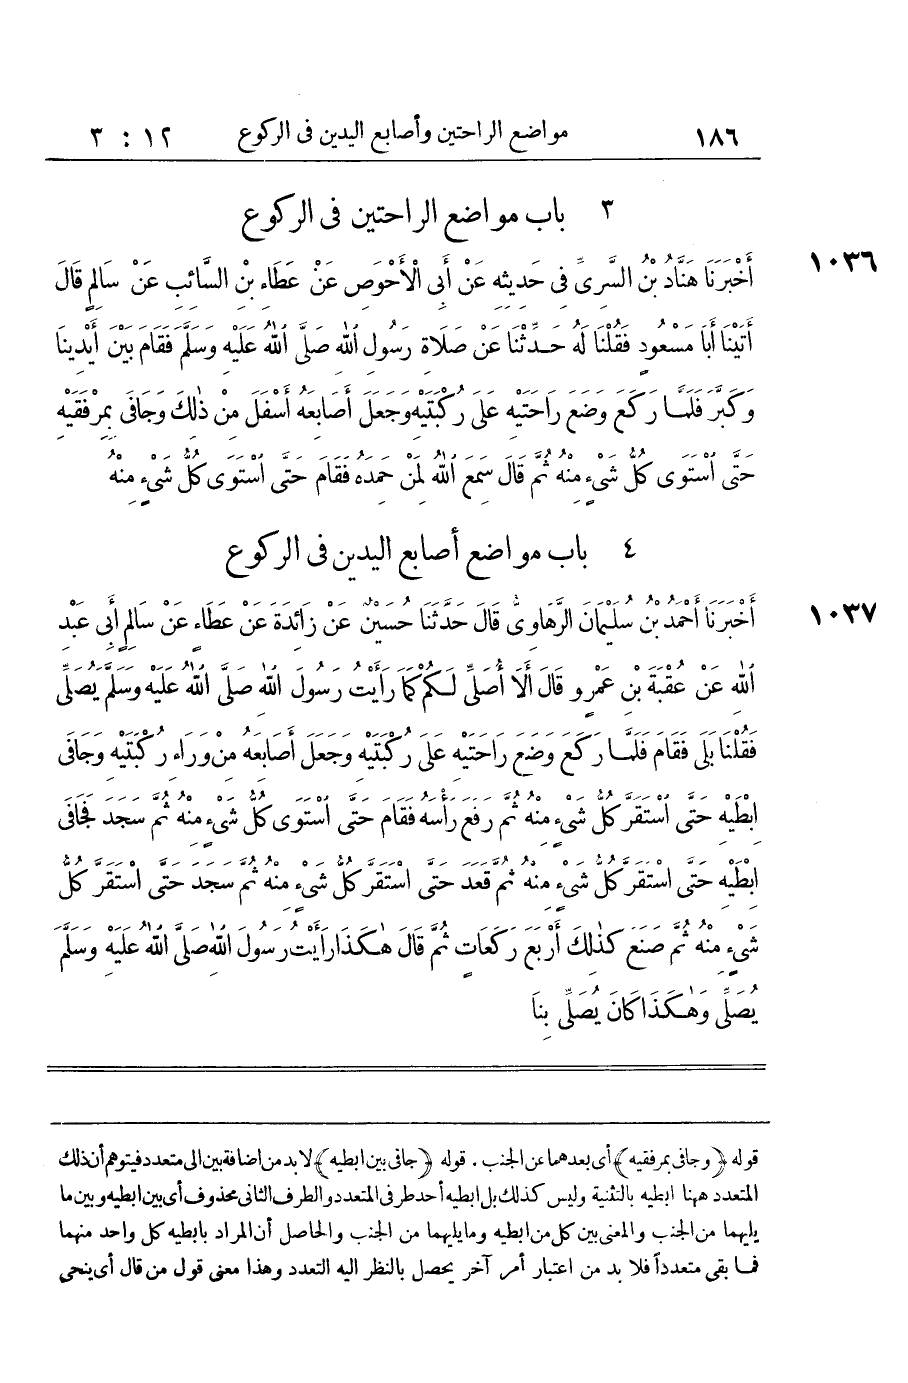 ١٨٦ مواضع الراحتين وأصابع اليدين فى الركوع ١٢ : ٣
٣ باب مواضع الراحتين فى الركوع
١٠٣٦ أَخْبَرَنَا هَنَّادُ بْنُ السَّرِىِّ فِى حَدِيثِهِ عَنْ أَبِى الْأَحْوَصِ عَنْ عَطَاءِ بْنِ السَّائِبِ عَنْ سَالِمٍ قَالَ
أَتَيْنَا أَبَا مَسْعُودٍ فَقُلْنَا لَهُ حَدِّثْنَا عَنْ صَلَاةِ رَسُولِ اللّٰهِ صَلَّى اللّٰهُ عَلَيْهِ وَسَلَّمَ فَقَامَ بَيْنَ أَيْدِينَا
وَكَبَّرَ فَلَمَّا رَكَعَ وَضَعَ رَاحَتَيْهِ عَلَى رُكْبَتَيْهِ وَجَعَلَ أَصَابِعَهُ أَسْفَلَ مِنْ ذٰلِكَ وَجَافَى بِمِرْفَقَيْهِ
حَتَّى اسْتَوَى كُلُّ شَىْءٍ مِنْهُ ثُمَّ قَالَ سَمِعَ اللّٰهُ لِمَنْ حَمِدَهُ فَقَامَ حَتَّى اسْتَوَى كُلُّ شَىْءٍ مِنْهُ
٤ باب مواضع أصابع اليدين فى الركوع
١٠٣٧ أَخْبَرَنَا أَحْمَدُ بْنُ سُلَيْمَانَ الرَّهَاوِىُّ قَالَ حَدَّثَنَا حُسَيْنٌ عَنْ زَائِدَةَ عَنْ عَطَاءٍ عَنْ سَالِمٍ أَبِى عَبْدِ
اللّٰهِ عَنْ عُقْبَةَ بْنِ عَمْرٍو قَالَ أَلَا أُصَلِّى لَكُمْ كَمَا رَأَيْتُ رَسُولَ اللّٰهِ صَلَّى اللّٰهُ عَلَيْهِ وَسَلَّمَ يُصَلِّى
فَقُلْنَا بَلَى فَقَامَ فَلَمَّا رَكَعَ وَضَعَ رَاحَتَيْهِ عَلَى رُكْبَتَيْهِ وَجَعَلَ أَصَابِعَهُ مِنْ وَرَاءِ رُكْبَتَيْهِ وَجَافَى
إِبْطَيْهِ حَتَّى اسْتَقَرَّ كُلُّ شَىْءٍ مِنْهُ ثُمَّ رَفَعَ رَأْسَهُ فَقَامَ حَتَّى اسْتَوَى كُلُّ شَىْءٍ مِنْهُ ثُمَّ سَجَدَ فَجَافَى
إِبْطَيْهِ حَتَّى اسْتَقَرَّ كُلُّ شَىْءٍ مِنْهُ ثُمَّ قَعَدَ حَتَّى اسْتَقَرَّ كُلُّ شَىْءٍ مِنْهُ ثُمَّ سَجَدَ حَتَّى اسْتَقَرَّ كُلُّ
شَىْءٍ مِنْهُ ثُمَّ صَنَعَ كَذٰلِكَ أَرْبَعَ رَكَعَاتٍ ثُمَّ قَالَ هٰكَذَا رَأَيْتُ رَسُولَ اللّٰهِ صَلَّى اللّٰهُ عَلَيْهِ وَسَلَّمَ
يُصَلِّى وَهٰكَذَا كَانَ يُصَلِّى بِنَا
قوله ﴿وجافى بمرفقيه﴾ أى بعدهما عن الجنب . قوله ﴿جافى بين ابطيه﴾ لا بد من اضافة بين الى متعدد فيتوهم أن ذلك
المتعدد ههنا ابطيه بالتثنية وليس كذلك بل ابطيه أحد طرفى المتعدد والطرف الثانى محذوف أى بين ابطيه وبين ما
يليهما من الجنب والمعنى بين كل من ابطيه وما يليهما من الجنب والحاصل أن المراد بابطيه كل واحد منهما
فما بقى متعدداً فلا بد من اعتبار أمر آخر يحصل بالنظر اليه التعدد وهذا معنى قول من قال أى ينحى